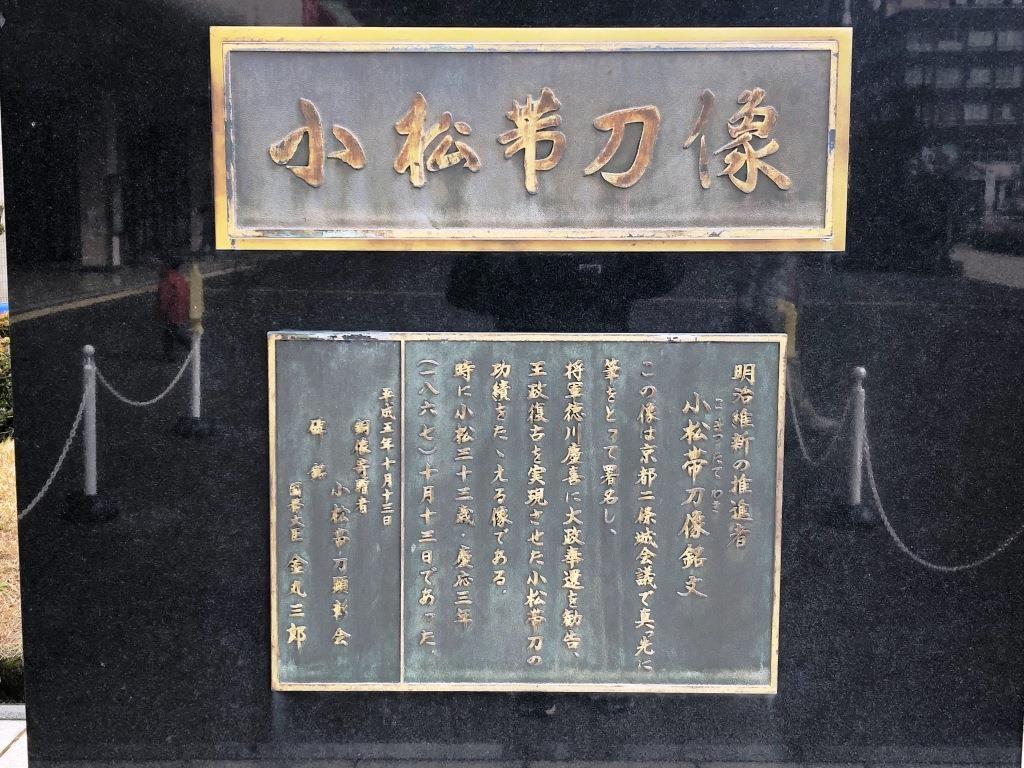 小松帯刀像
明治維新の推進者
こまつたてわき
小松帯刀像銘文
この像は京都二條城会議で真っ先に
筆をとって署名し、
将軍徳川慶喜に大政奉還を勧告、
王政復古を実現させた小松帯刀の
功績をたゝえる像である。
時に小松三十三歳・慶応三年
(一八六七)十月十三日であった。
平成五年十月十三日
銅像寄贈者
小松帯刀顕彰会
碑銘
金丸三郎